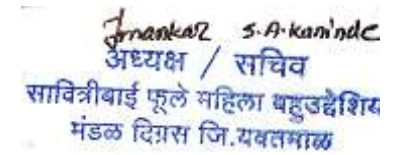 S.A. Kaminde
अध्यक्ष / सचिव
सावित्रीबाई फूले महिला बहुउद्देशिय
मंडळ दिग्रस जि.यवतमाळ